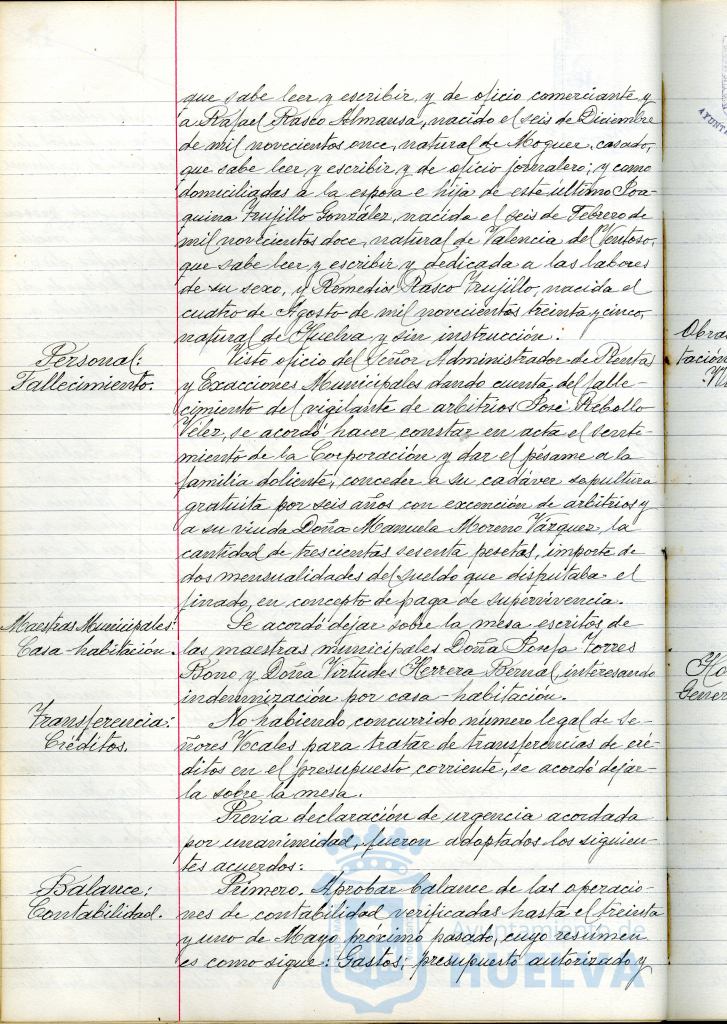 que sabe leer y escribir, y de oficio comerciante y
a Rafael Rasco Almansa, nacido el seis de Diciembre
de mil novecientos once, natural de Moguer, casado,
que sabe leer y escribir y de oficio jornalero; y como
domiciliadas a la esposa e hija de este último Joa-
quina Trujillo González, nacida el seis de Febrero de
mil novecientos doce, natural de Valencia del Ventoso,
que sabe leer y escribir y dedicada a las labores
de su sexo, y Remedios Rasco Trujillo, nacida el
cuatro de Agosto de mil novecientos treinta y cinco,
natural de Huelva y sin instrucción.
Personal:
Fallecimiento.
Visto oficio del Señor Administrador de Rentas
y Exacciones Municipales dando cuenta del falle-
cimiento del vigilante de arbitrios José Rebollo
Vélez, se acordó hacer constar en acta el senti-
miento de la Corporación y dar el pésame a la
familia doliente, conceder a su cadáver sepultura
gratuita por seis años con exención de arbitrios y
a su viuda Doña Manuela Moreno Vázquez, la
cantidad de trescientas sesenta pesetas, importe de
dos mensualidades del sueldo que disfrutaba el
finado, en concepto de paga de supervivencia.
Maestras Municipales:
Casa-habitación.
Se acordó dejar sobre la mesa escritos de
las maestras municipales Doña Josefa Torres
Bono y Doña Virtudes Herrera Bernal interesando
indemnización por casa-habitación.
Transferencia:
Créditos.
No habiendo concurrido número legal de Se-
ñores Vocales para tratar de transferencias de cré-
ditos en el presupuesto corriente, se acordó dejar-
la sobre la mesa.
Previa declaración de urgencia acordada
por unanimidad, fueron adoptados los siguien-
tes acuerdos:
Balance:
Contabilidad.
Primero. Aprobar balance de las operacio-
nes de contabilidad verificadas hasta el treinta
y uno de Mayo próximo pasado, cuyo resumen
es como sigue: Gastos; presupuesto autorizado y
Ayuntamiento de
HUELVA